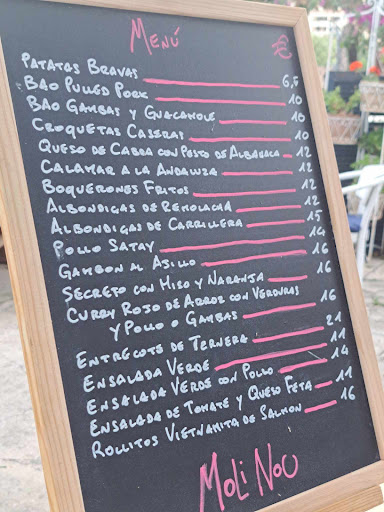 Menú €
Patatas Bravas 6,5
Bao Pulled Pork 10
Bao Gambas y Guacamole 10
Croquetas Caseras 10
Queso de Cabra con Pesto de Albahaca 12
Calamar a la Andaluza 12
Boquerones Fritos 12
Albondigas de Remolacha 12
Albondigas de Carrillera 15
Pollo Satay 14
Gambon al Ajillo 16
Secreto con Miso y Naranja 16
Curry Rojo de Arroz con Verduras
y Pollo o Gambas 16
Entrecote de Ternera 21
Ensalada Verde 11
Ensalada Verde con Pollo 14
Ensalada de Tomate y Queso Feta 11
Rollitos Vietnamita de Salmon 16
Moli Nou